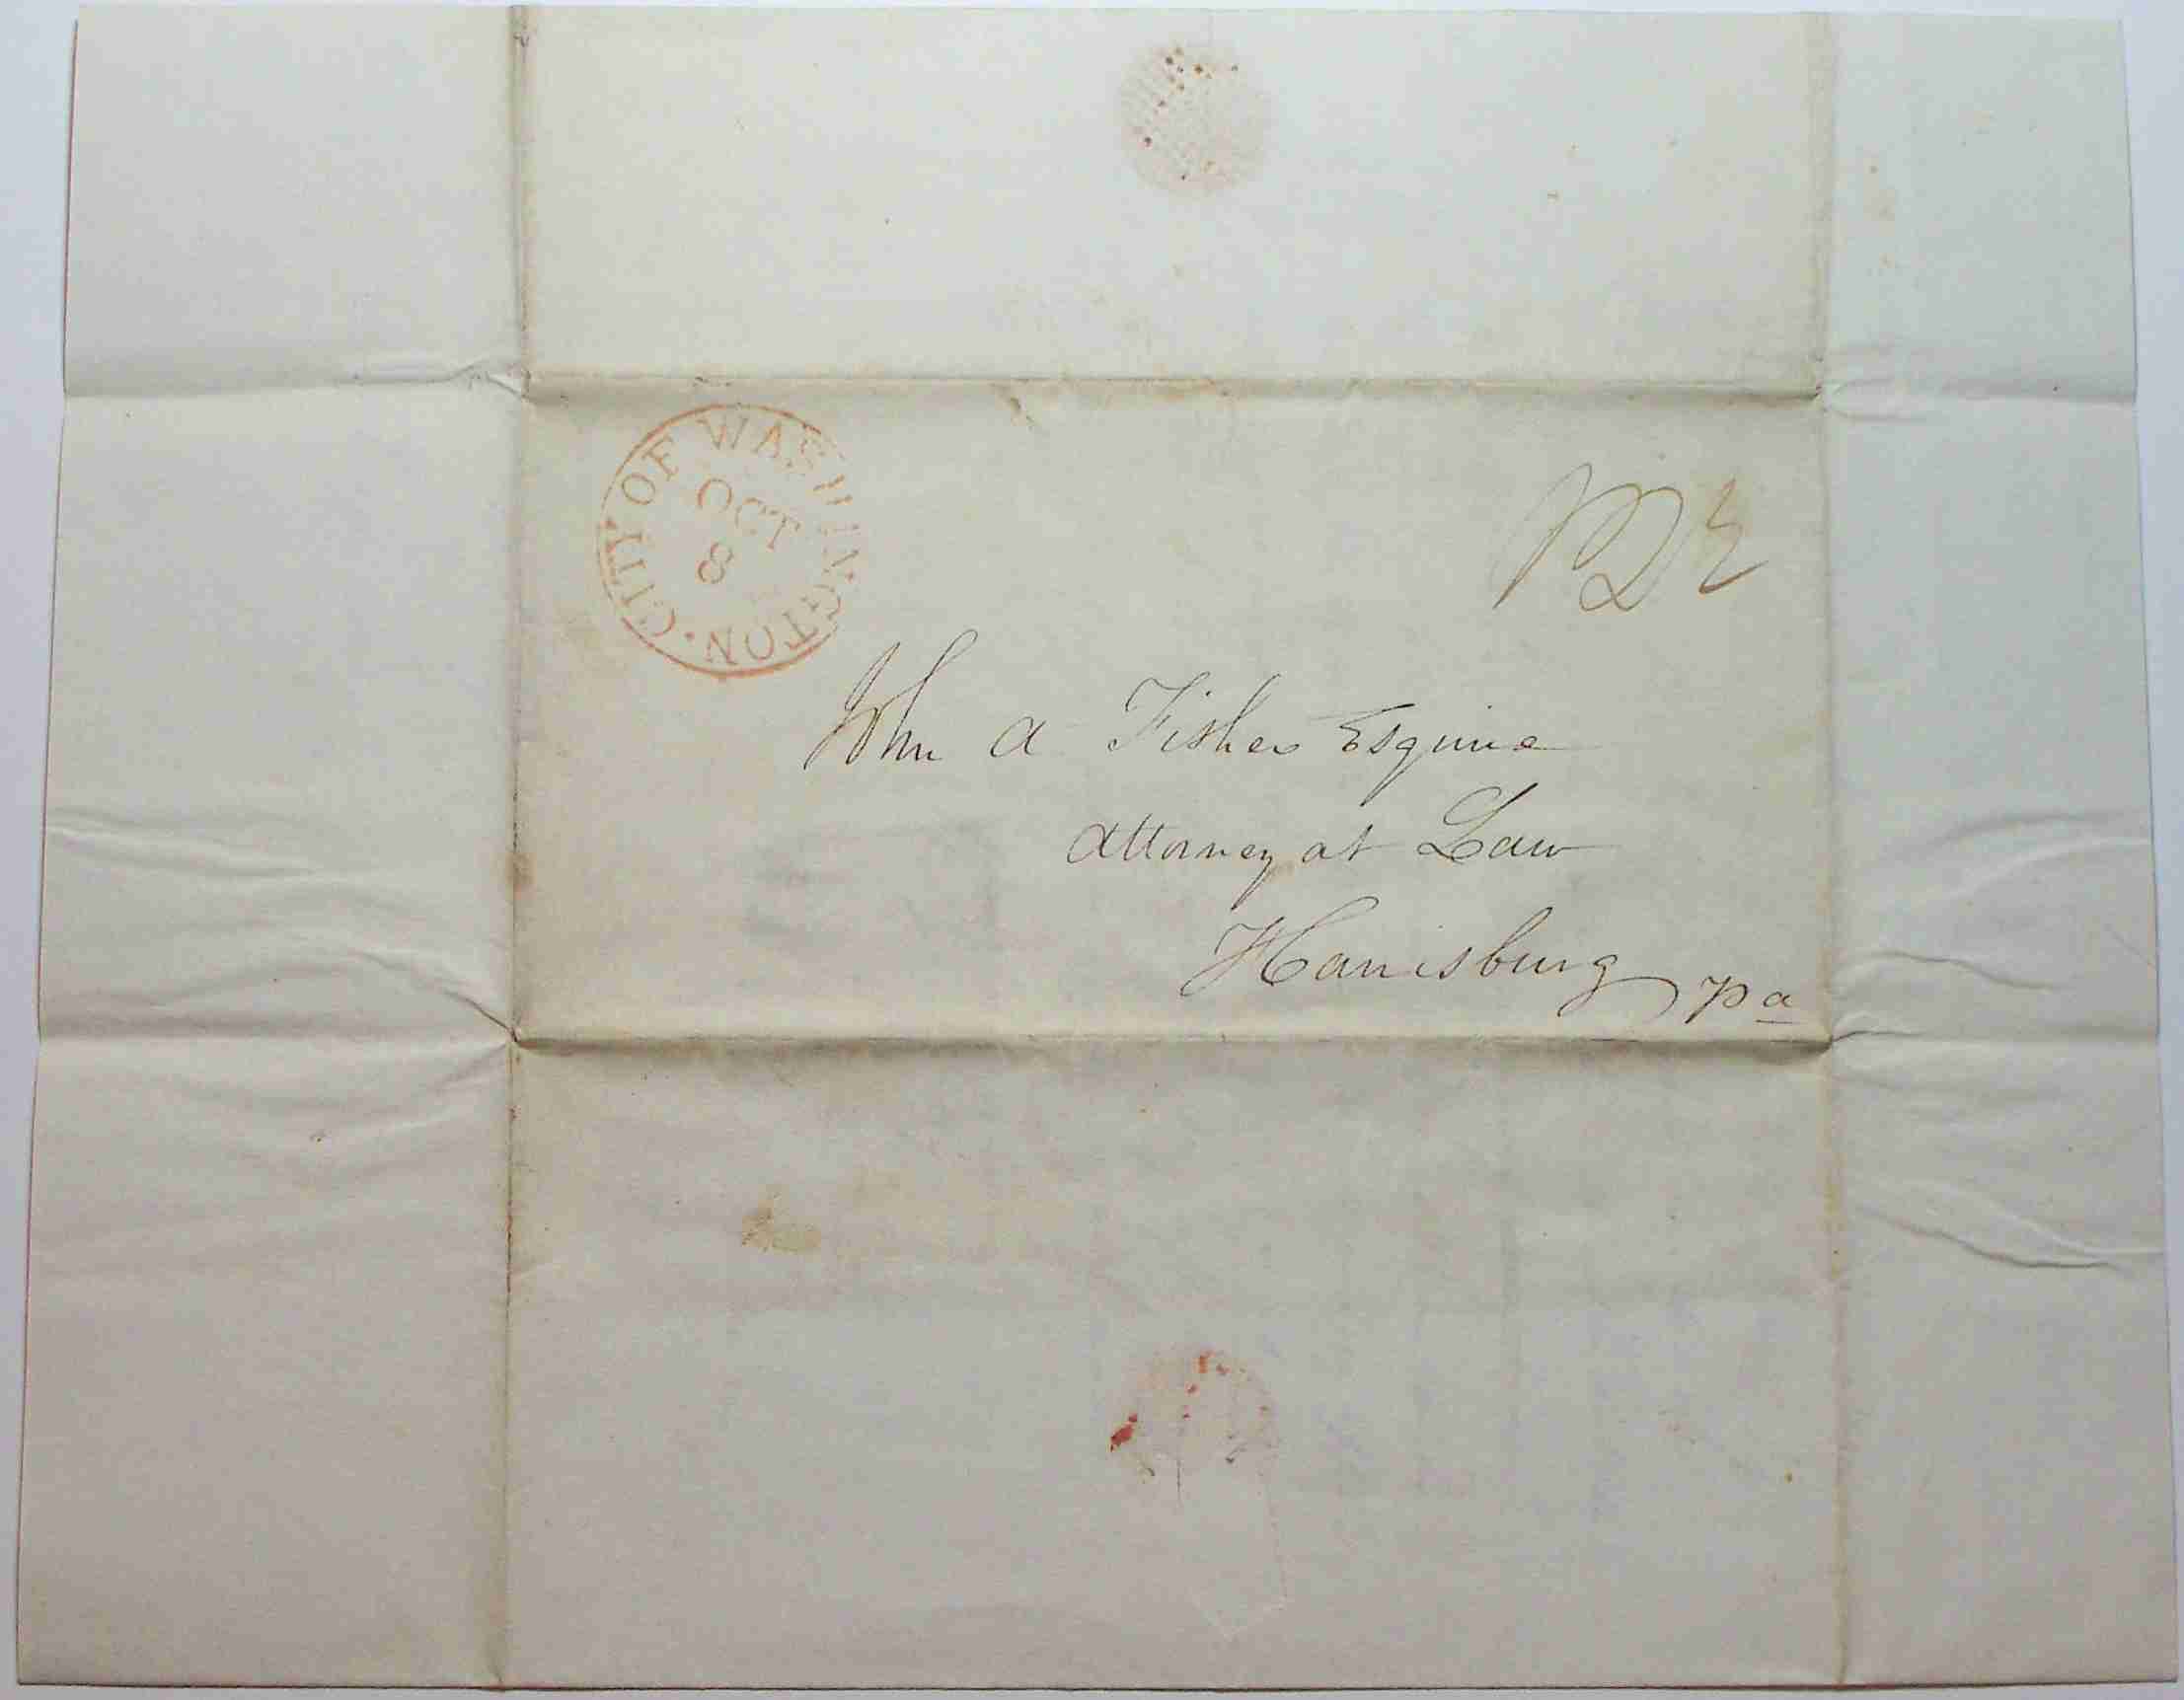 CITY OF WASHINGTON
OCT
8
John A Fisher Esquire
Attorney at Law
Harrisburg Pa